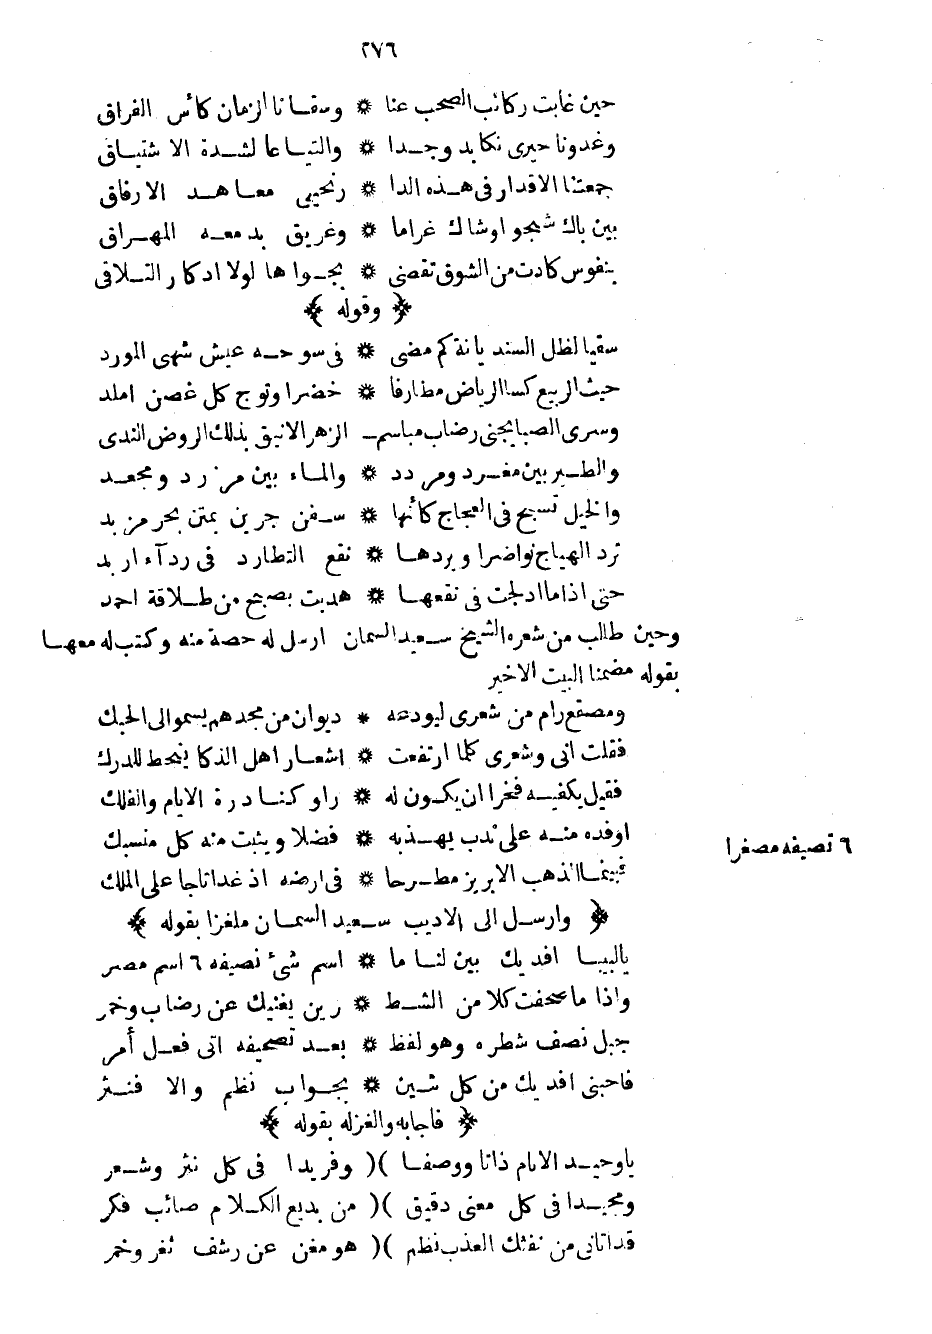 ٢٧٦
حين غابت ركائب الصحب عنا ❋ وسقانا الزمان كأس الفراق
وغدونا حيرى نكابد وجدا ❋ والتياعا لشدة الاشتياق
جمعتنا الاقدار فى هذه الدا ❋ رنحيى معاهد الارفاق
بين باك شجو اوشاك غراما ❋ وغريق بدمعه المهراق
بنفوس كادت من الشوق تقضى ❋ بجواها لولا ادكار التلاقى
﴿ وقوله ﴾
سقيا لظل السنديانة كم مضى ❋ فى سوحه عيش شهى المورد
حيث الربيع كسا الرياض مطارفا ❋ خضرا وتوج كل غصن املد
وسرى الصبا يجنى رضاب مباسم الزهر الانيق بذلك الروض الندى
والطير بين مغرد ومردد ❋ والماء بين مزرد ومجعد
والخيل تسبح فى العجاج كأنها ❋ سفن جرين بمتن بحر مزبد
ترد الهياج نواضرا ويردها ❋ نقع التطارد فى ردآء اربد
حتى اذا ما ادلجت فى نقعها ❋ هديت بصبح من طلاقة احمد
وحين طالب من شعره الشيخ سعيد السمان ارسل له حصة منه وكتب له معها
بقوله مضمنا البيت الاخير
ومصقع رام من شعرى ليودعه ❋ ديوان من مجدهم يسمو الى الحبك
فقلت انى وشعرى كلما ارتفعت ❋ اشعار اهل الذكا ينحط للدرك
فقيل يكفيه فخرا ان يكون له ❋ راو كنادرة الايام والفلك
اوفده منه على ندب يهذبه ❋ فضلا ويثبت منه كل منسبك
فبينما الذهب الابريز مطرحا ❋ فى ارضه اذ غدا تاجا على الملك
﴿ وارسل الى الاديب سعيد السمان ملغزا بقوله ﴾
يالبيبا افديك بين لنا ما ❋ اسم شئ نصيفه ٦ اسم مصر
واذا ما صحفت كلا من الشط ❋ رين يغنيك عن رضاب وخمر
جبل نصف شطره وهو لفظ ❋ بعد تصحيفه اتى فعل أمر
فاجبنى افديك من كل شين ❋ بجواب نظم والا فنثر
﴿ فاجابه والغزله بقوله ﴾
ياوحيد الايام ذاتا ووصفا )( وفريدا فى كل نثر وشعر
ومجيدا فى كل معنى دقيق )( من بديع الكلام صائب فكر
قد اتانى من نفثك العذب نظم )( هو مغن عن رشف ثغر وخمر
٦ تصيفه مصغرا